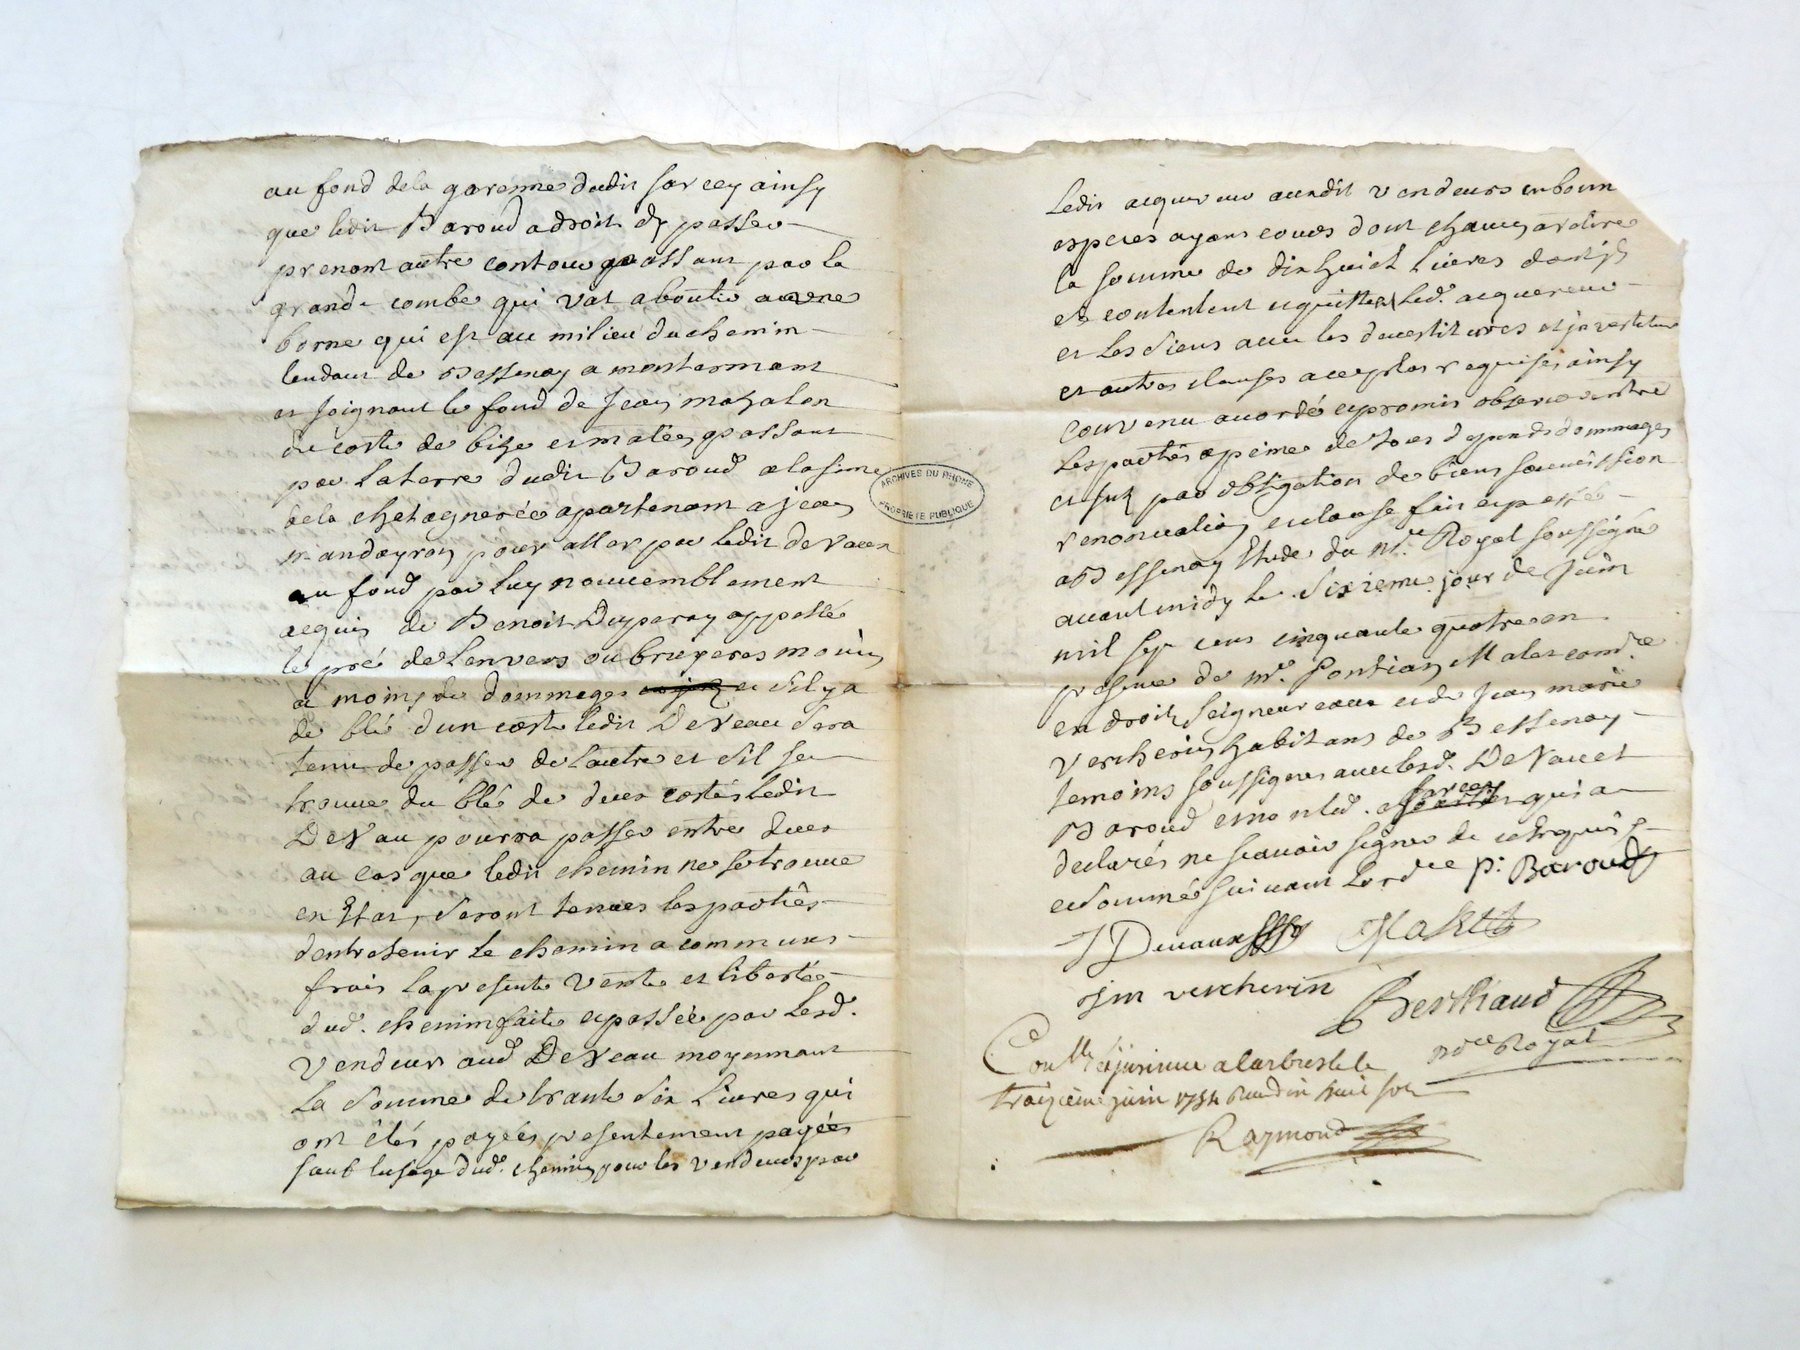 au fond dela garenne dudit sarcey ainsy
que ledit Baroud a droit dy passer
prenant autre contour passant par la
grande combe qui vat aboutir a une
borne qui est au milieu du chemin
tendant de Bessenay a montarmant
et joignant le fond de Jean mazalon
du costé de bize et matin passant
par la terre dudit Baroud a la sime
de la chatagnerée apartenant a jean
pour aller par ledit devaux
au fond par luy nouvemblement
acquis de Benoit Duperay appellé
le pré de Lenvers ou bruyeres
a moins de dommages et sil y a
de blé dun costé ledit DeVeau sera
tenu de passer de lautre et sil se
trouve du blé de deux costés ledit
DeVau pourra passer entre deux
au cas que ledit chemin ne se trouve
en Etat, seront tenues les parties
dentretenir le chemin a communs
frais la presente vente et liberté
dud. chemin faite et passée par lesd.
vendeurs aud DeVeau moyennant
La somme de trante six Livres qui
ont étés payées presentement payées
sauf lusage dud. chemin pour les vendeurs par
Ledit acquereur auxdit vendeurs en bonn
especes ayant cours dont chacun a retiré
la somme de dix huict livres
et contentent et quittent led. acquereur
et les siens avec les devestitures et jnvestiture
et autres clauses accepter requises ainsy
convenu acordé et promis observer entre
Les parties a peine de tous depends dommages
et par obligation de biens soumission
renonciation et clause fait et passé
a Bessenay Etude du Nre Royal soussigné
avant midy le sixieme jour de Juin
mil sept cens cinquante quatre en
presence de Mr. Pontian Malet comre
en droit seigneureaux et de Jean marie
vercherin habitans de Bessenay
temoins soussignés avec lesd. DeVau et
Baroud et non led. sarcey qui a
declarés ne scavoir signer de ce enquis
et sommé suivant Lordce P. Baroud
J Devaux Malet
jm vercherin
Berthaud
Nre Royal
Conllé a larbresle le
treizieme juin 1754 huit sols
Raymond
ARCHIVES DU RHONE
PROPRIETE PUBLIQUE